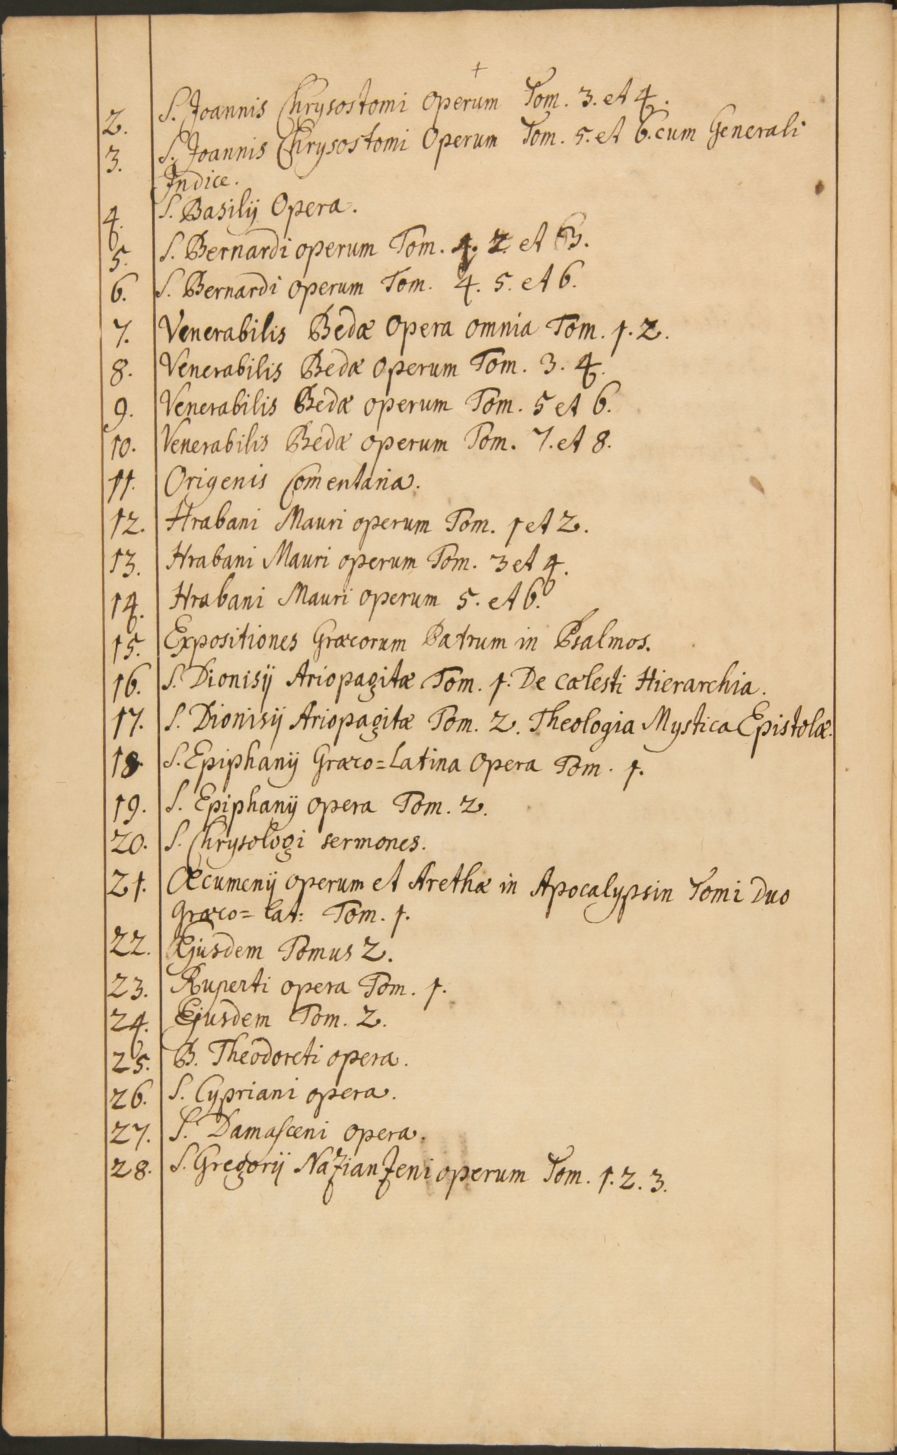 +
2. S. Joannis Chrysostomi Operum Tom. 3. et 4.
3. S. Joannis Chrysostomi Operum Tom. 5. et 6. cum Generali
Indice.
4. S. Basilij Opera.
5. S. Bernardi operum Tom. 1. 2. et 3.
6. S. Bernardi operum Tom. 4. 5. et 6.
7. Venerabilis Bedæ Opera omnia Tom. 1. 2.
8. Venerabilis Bedæ Operum Tom. 3. 4.
9. Venerabilis Bedæ operum Tom. 5 et 6.
10. Venerabilis Bedæ operum Tom. 7. et 8.
11. Origenis Com̄entaria.
12. Hrabani Mauri operum Tom. 1 et 2.
13. Hrabani Mauri operum Tom. 3 et 4.
14. Hrabani Mauri operum 5. et 6.
15. Expositiones Græcorum Patrum in Psalmos.
16. S. Dionisij Ariopagitæ Tom. 1. De cœlesti Hierarchia.
17. S. Dionisij Ariopagitæ Tom. 2. Theologia Mystica Epistolæ.
18 S. Epiphanij Græco=Latina Opera Tom. 1.
19. S. Epiphanij opera Tom. 2.
20. S. Chrysologi sermones.
21. Œcumenij operum et Arethæ in Apocalypsin Tomi Duo
Græco=Lat: Tom. 1.
22. Ejusdem Tomus 2.
23. Ruperti opera Tom. 1.
24. Ejusdem Tom. 2.
25. B. Theodoreti opera.
26. S. Cypriani opera.
27. S. Damasceni opera.
28. S. Gregorij Nazianzeni operum Tom. 1. 2. 3.